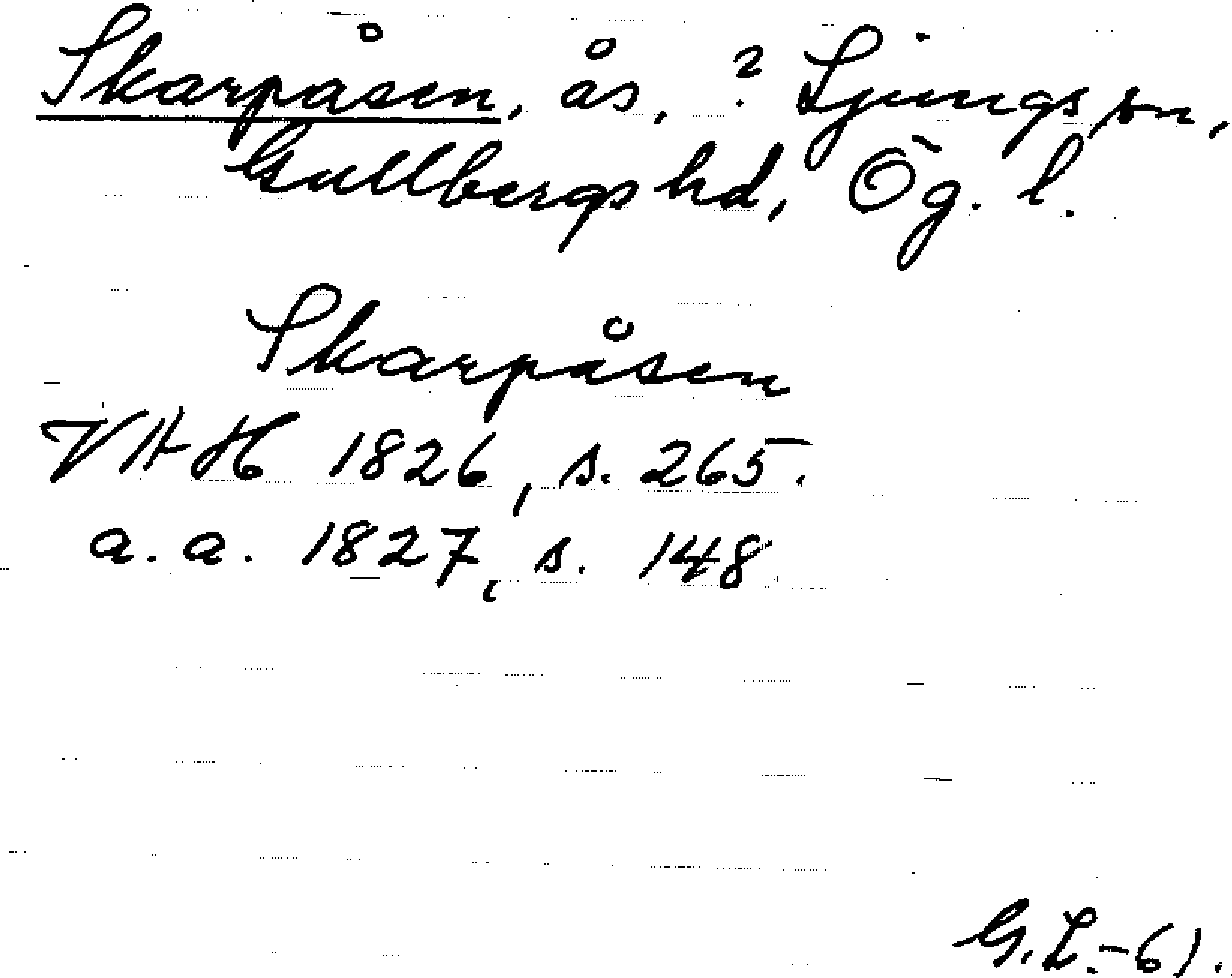 Skarpåsen, ås, ? Ljungs sn,
Gullbergs hd, Ög. l.
Skarpåsen
VAH 1826, s. 265.
a. a. 1827, s. 148
G.L.-61.